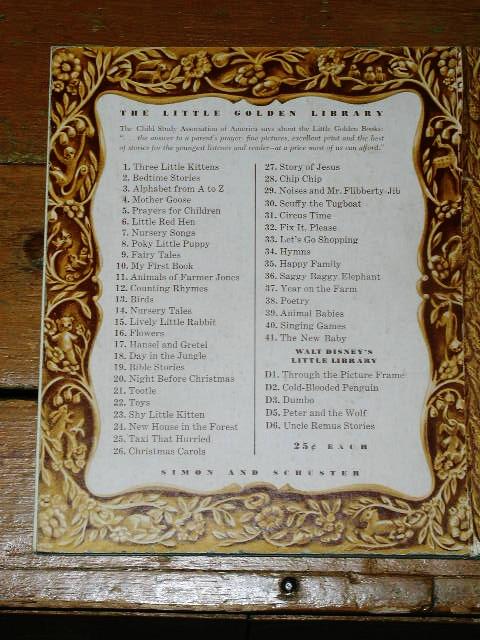 THE LITTLE GOLDEN LIBRARY
The Child Study Association of America says about the Little Golden Books:
". . . the answer to a parent's prayer: fine pictures, excellent print and the best
of stories for the youngest listener and reader—at a price most of us can afford."
1. Three Little Kittens
2. Bedtime Stories
3. Alphabet from A to Z
4. Mother Goose
5. Prayers for Children
6. Little Red Hen
7. Nursery Songs
8. Poky Little Puppy
9. Fairy Tales
10. My First Book
11. Animals of Farmer Jones
12. Counting Rhymes
13. Birds
14. Nursery Tales
15. Lively Little Rabbit
16. Flowers
17. Hansel and Gretel
18. Day in the Jungle
19. Bible Stories
20. Night Before Christmas
21. Tootle
22. Toys
23. Shy Little Kitten
24. New House in the Forest
25. Taxi That Hurried
26. Christmas Carols
27. Story of Jesus
28. Chip Chip
29. Noises and Mr. Flibberty-Jib
30. Scuffy the Tugboat
31. Circus Time
32. Fix It, Please
33. Let's Go Shopping
34. Hymns
35. Happy Family
36. Saggy Baggy Elephant
37. Year on the Farm
38. Poetry
39. Animal Babies
40. Singing Games
41. The New Baby
WALT DISNEY'S
LITTLE LIBRARY
D1. Through the Picture Frame
D2. Cold-Blooded Penguin
D3. Dumbo
D5. Peter and the Wolf
D6. Uncle Remus Stories
25¢ EACH
SIMON AND SCHUSTER